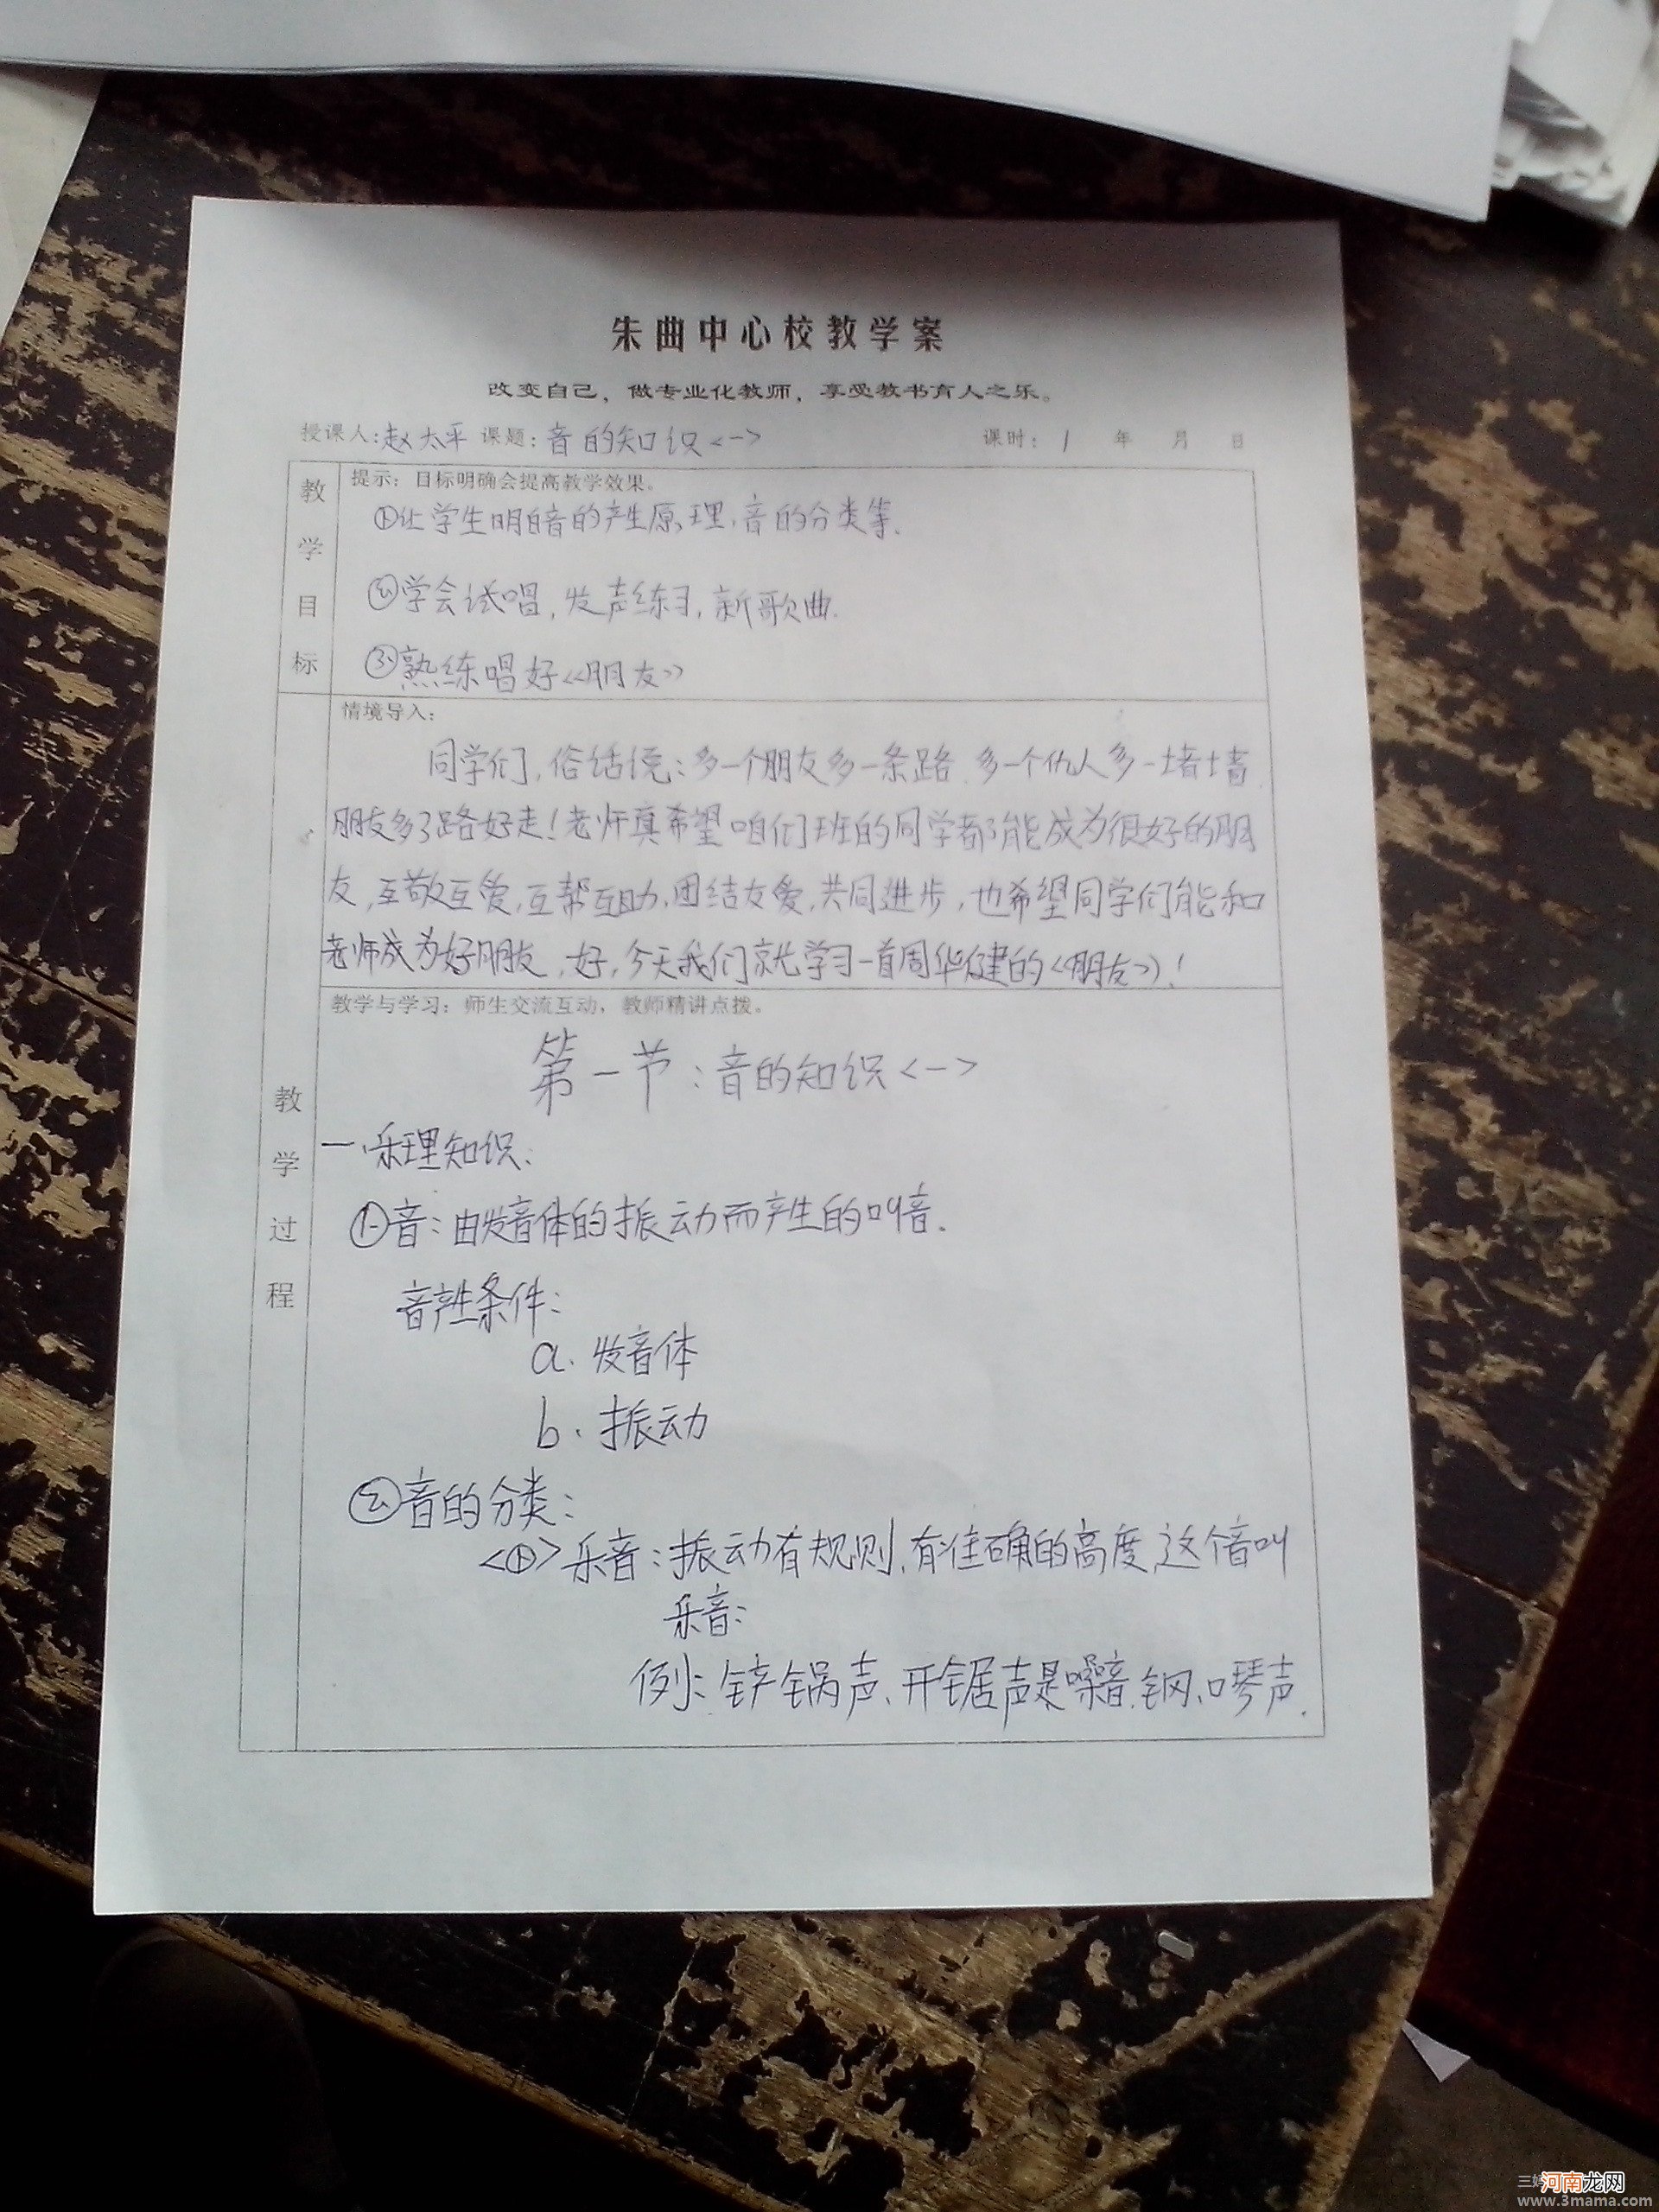 朱曲中心校教学案
改变自己，做专业化教师，享受教书育人之乐。
授课人：赵太平 课题：音的知识<一> 课时：1 年 月 日
教学目标
提示：目标明确会提高教学效果。
①让学生明白音的产生原理，音的分类等.
②学会试唱，发声练习，新歌曲.
③熟练唱好《朋友》
教学过程
情境导入：
同学们，俗话说：多一个朋友多一条路，多一个仇人多一堵墙，
朋友多了路好走！老师真希望咱们班的同学都能成为很好的朋
友，互敬互爱，互帮互助，团结友爱，共同进步，也希望同学们能和
老师成为好朋友，好，今天我们就学习一首周华健的《朋友》！
教学与学习：师生交流互动，教师精讲点拨。
第一节：音的知识<一>
一、乐理知识：
①音：由发音体的振动而产生的叫音.
音产生条件：
a. 发音体
b. 振动
②音的分类：
<1>乐音：振动有规则，有准确的高度，这个音叫
乐音：
例：铲锅声、开锯声是噪音，钢、口琴声.
河南龙网
www.3mama.com